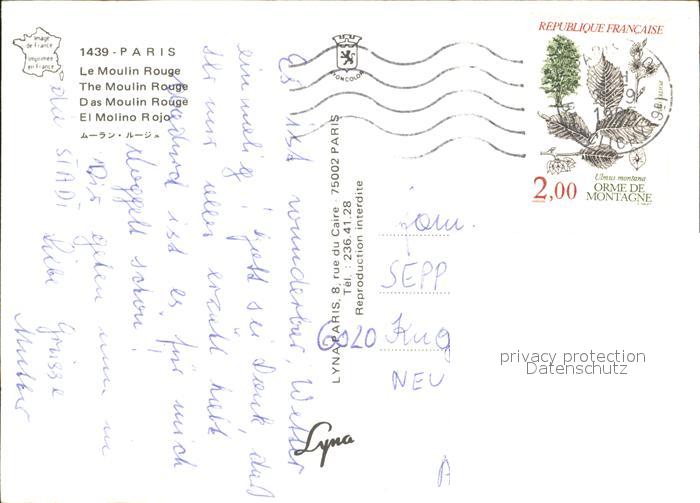 Image
de France
Imprimée
en France
1439 - PARIS
Le Moulin Rouge
The Moulin Rouge
Das Moulin Rouge
El Molino Rojo
ムーラン・ルージュ
Es ist wunderbar, Wetter
einmalig! Gott sei Dank, daß
mir alles erzählt hast
ist es für mich
schön!
Wir gehen nun in
die STADT Liebe Grüsse
Mutter
LYNA-PARIS, 8, rue du Caire - 75002 PARIS
Tél. : 236.41.28
Reproduction interdite
Lyna
REPUBLIQUE FRANÇAISE
Ulmus montana
2,00 ORME DE
MONTAGNE
SEPP
6020
NEU
A
privacy protection
Datenschutz